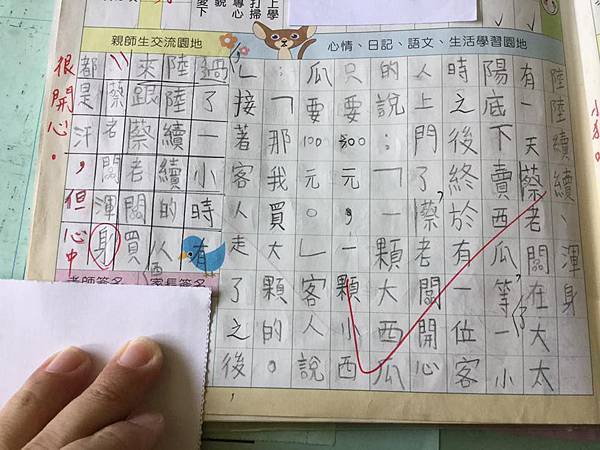 上學
打掃
專心
愛下
親師生交流園地
心情、日記、語文、生活學習園地
陸陸續續、渾身
有一天蔡老闆在大太
陽底下賣西瓜,等了一小
時之後終於有一位客
人上門了,蔡老闆開心
的說:「一顆大西瓜
只要300元,一顆小西
瓜要100元。」客人說
:「那我買大顆的。
」接著客人走了之後
過了一小時有
陸陸續續的人
來跟蔡老闆買西
蔡老闆渾身
都是汗,但心中
很開心。
老師簽名
家長簽名